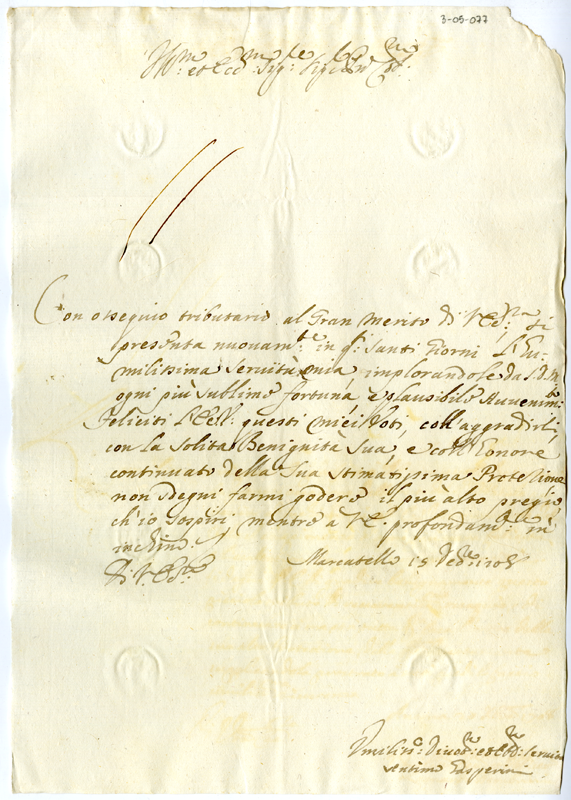 3-05-077
Ill.mo et Ecc.mo Sig.re Sig.re
Con ossequio tributario al Gran Merito di V. Ecc.za si
presenta nuovam.te in q.i Santi Giorni l'Hu-
milissima Servitù mia, implorandole da S. D. M.
ogni più sublime fortuna e plausibile Avvenim.to
Feliciti l'Ecc: questi miei Voti, coll'aggradirli
con la solita Benignità Sua, e coll'honore
continuato della Sua Stimatissima Protezione
non sdegni farmi godere il più alto pregio
ch'io sospiri, mentre a V.E. profondam.te in
inchino.
Di V. Ecc.za
Mercatello 15 Xbre
Umiliss.o Divot.mo et Obb.mo Servitore
Antimo Gasperini